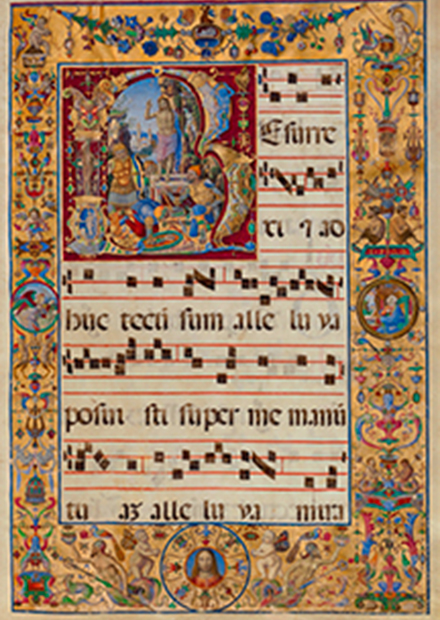 Esurre
xi ⁊ ad
huc tecū sum alle lu ya
posui sti super me manū
tu az alle lu ya mira